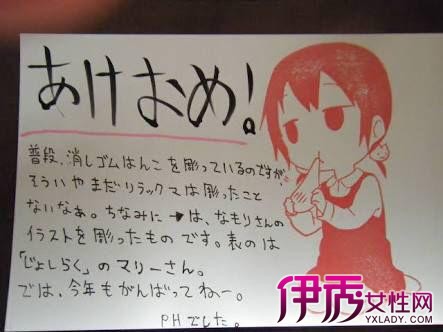 あけおめ!
普段、消しゴムはんこを彫っているのですが
そういやまだリラックマは彫ったこと
ないなぁ。ちなみに→は、なもりさんの
イラストを彫ったものです。表のは
「じょしらく」のマリーさん。
では、今年もがんばってねー。
PHでした。
伊秀女性网
YXLADY.COM